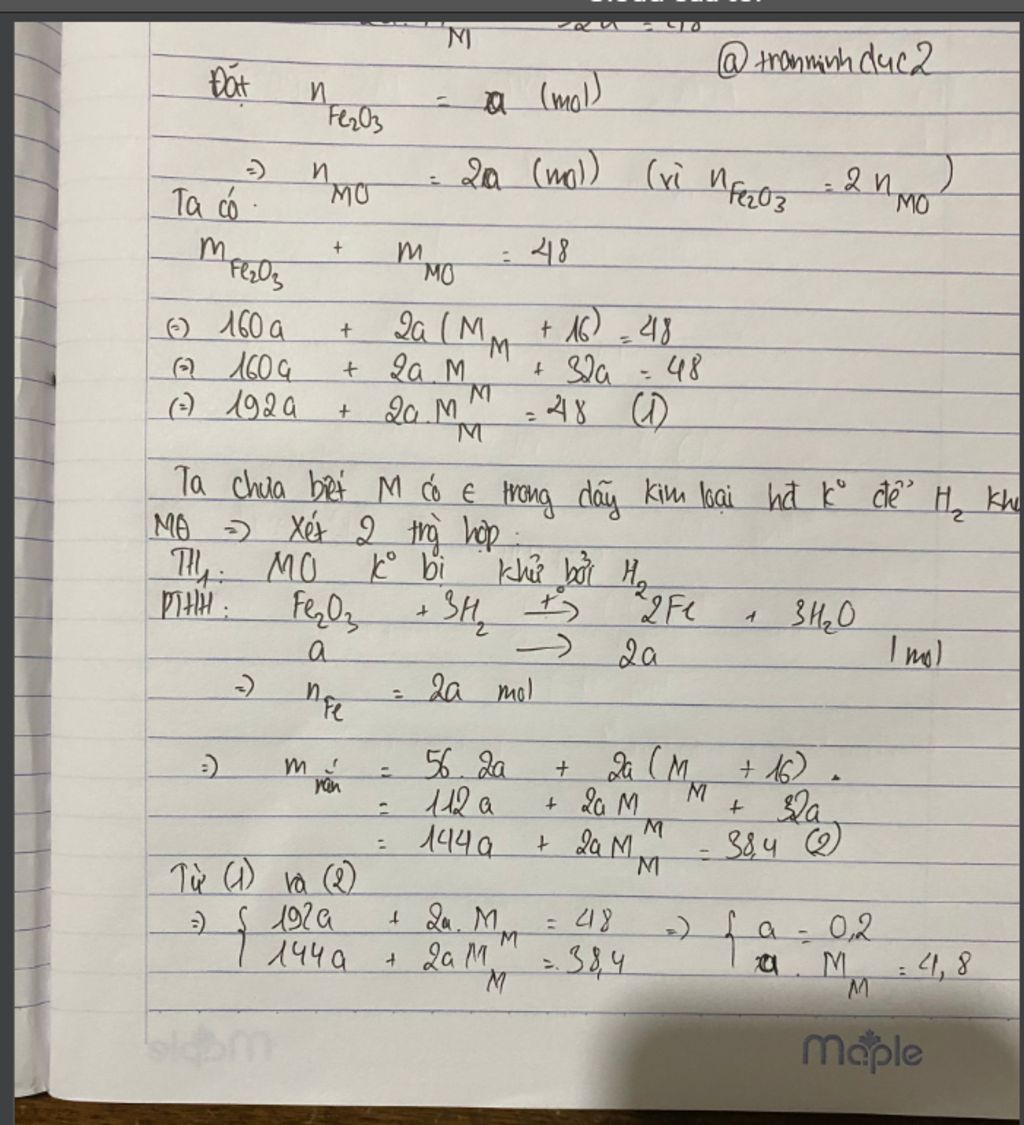 M 32a = 48
@tranminhduc2
Đặt n Fe2O3 = a (mol)
=) n MO = 2a (mol) (vì n Fe2O3 = 2 n MO)
Ta có.
m Fe2O3 + m MO = 48
(=) 160a + 2a (M M + 16) = 48
(=) 160a + 2a. M M + 32a = 48
(=) 192a + 2a. M M = 48 (1)
Ta chưa biết M có ∈ trong dãy kim loại hđ k° để H2 khử
MO => Xét 2 trg hợp:
TH1: MO k° bị khử bởi H2
PTHH: Fe2O3 + 3H2 t° → 2Fe + 3H2O
a → 2a mol
=) n Fe = 2a mol
=) m rắn = 56. 2a + 2a (M M + 16).
= 112a + 2a M M + 32a
= 144a + 2a M M = 38,4 (2)
Từ (1) và (2)
=) { 192a + 2a. M M = 48 =) { a = 0,2
144a + 2a M M = 38,4 a. M M = 4,8
Maple